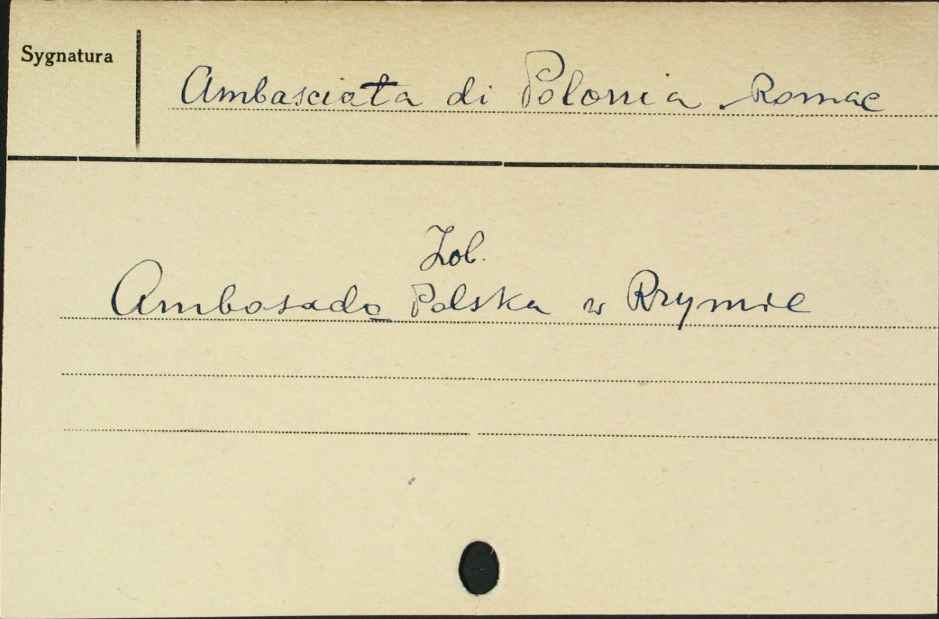 Sygnatura
Ambasciata di Polonia Romae
Zob.
Ambasada Polska w Rzymie